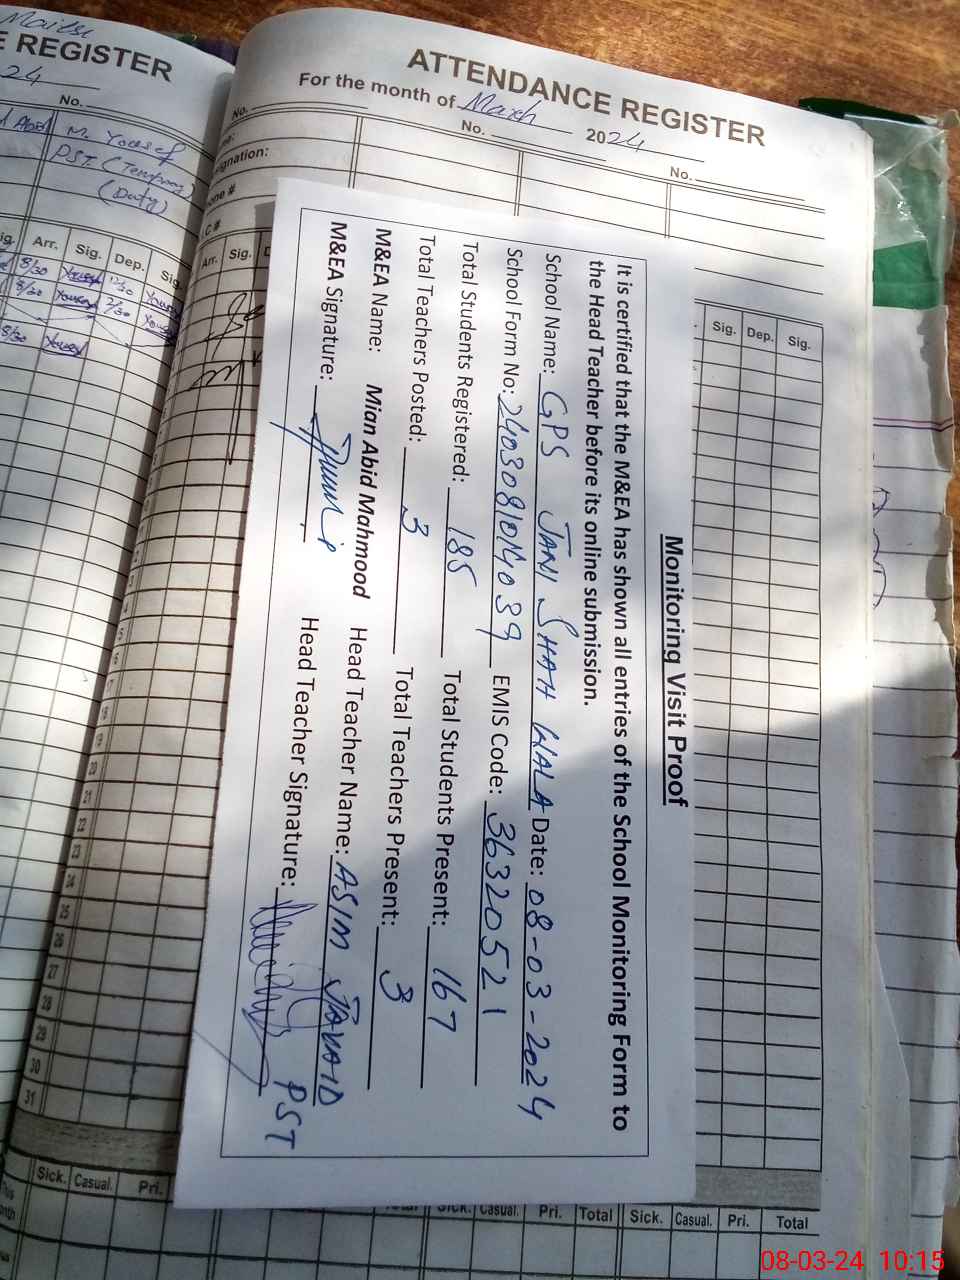 Mailsi
E REGISTER
24
No.
M. Yousef
PST. (Temporary)
(Duty)
Arr. Sig. Dep. Sig.
8/30 Yousef 12/30 Yousef
8/30 Yousef 2/30 Yousef
8/30 Yousef
ATTENDANCE REGISTER
For the month of March 2024
No. No. No.
C #
Arr. Sig.
Sig. Dep. Sig.
Monitoring Visit Proof
It is certified that the M&EA has shown all entries of the School Monitoring Form to
the Head Teacher before its online submission.
School Name: GPS JANI SHAH WALA Date: 08-03-2024
School Form No: 2403081014039 EMIS Code: 36320521
Total Students Registered: 185 Total Students Present: 167
Total Teachers Posted: 3 Total Teachers Present: 3
M&EA Name: Mian Abid Mahmood Head Teacher Name: ASIM JAVAID
PST
M&EA Signature: Head Teacher Signature:
19
20
21
22
23
24
25
26
27
28
29
30
31
Sick. Casual. Pri. Total Sick. Casual. Pri. Total Sick. Casual. Pri. Total
08-03-24 10:15